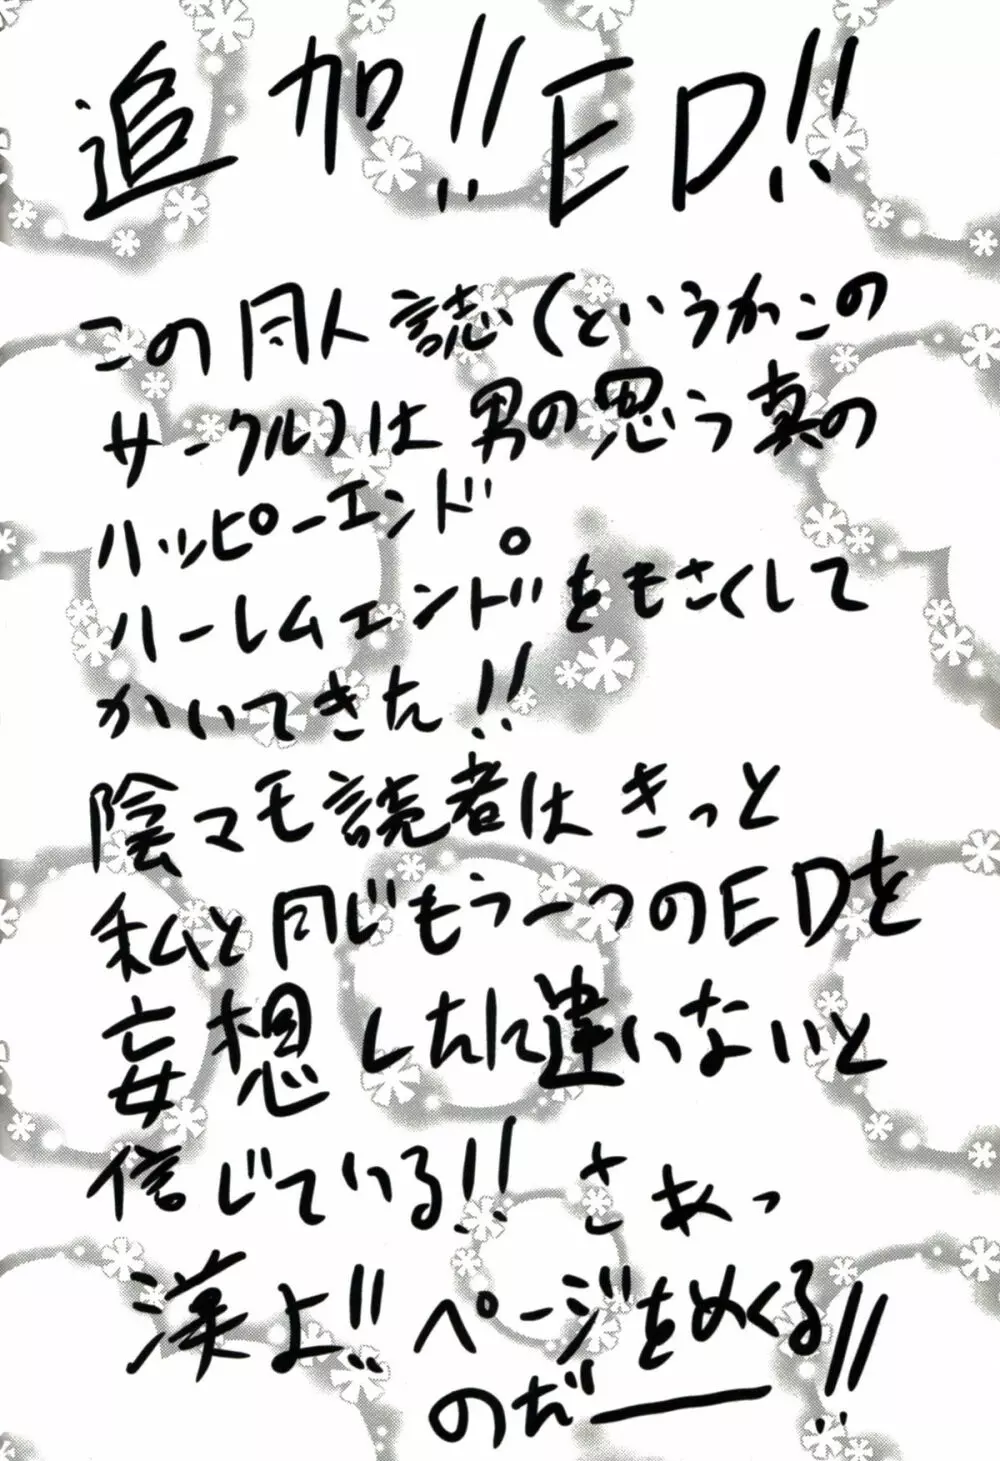 追加!! ED!!
この同人誌(というかこの
サークル)は男の思う真の
ハッピーエンド。
ハーレムエンドをもさくして
かいてきた!!
陰マモ読者はきっと
私と同じもう一つのEDを
妄想したに違いないと
信じている!! さあっ
漢よ!! ページをめくる
のだ――!!